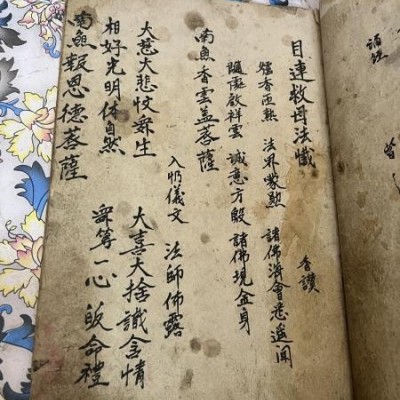 目連救母法懺 香讚
爐香乍熱 法界蒙勲 諸佛海會悉遥聞
隨處啟祥雲 誠意方殷 諸佛現金身
南無香雲盖菩薩
入懺儀文 法師佈露
大慈大悲忟眾生 大喜大捨識含情
相好光明体自然 眾等一心皈命禮
南無報恩德菩薩